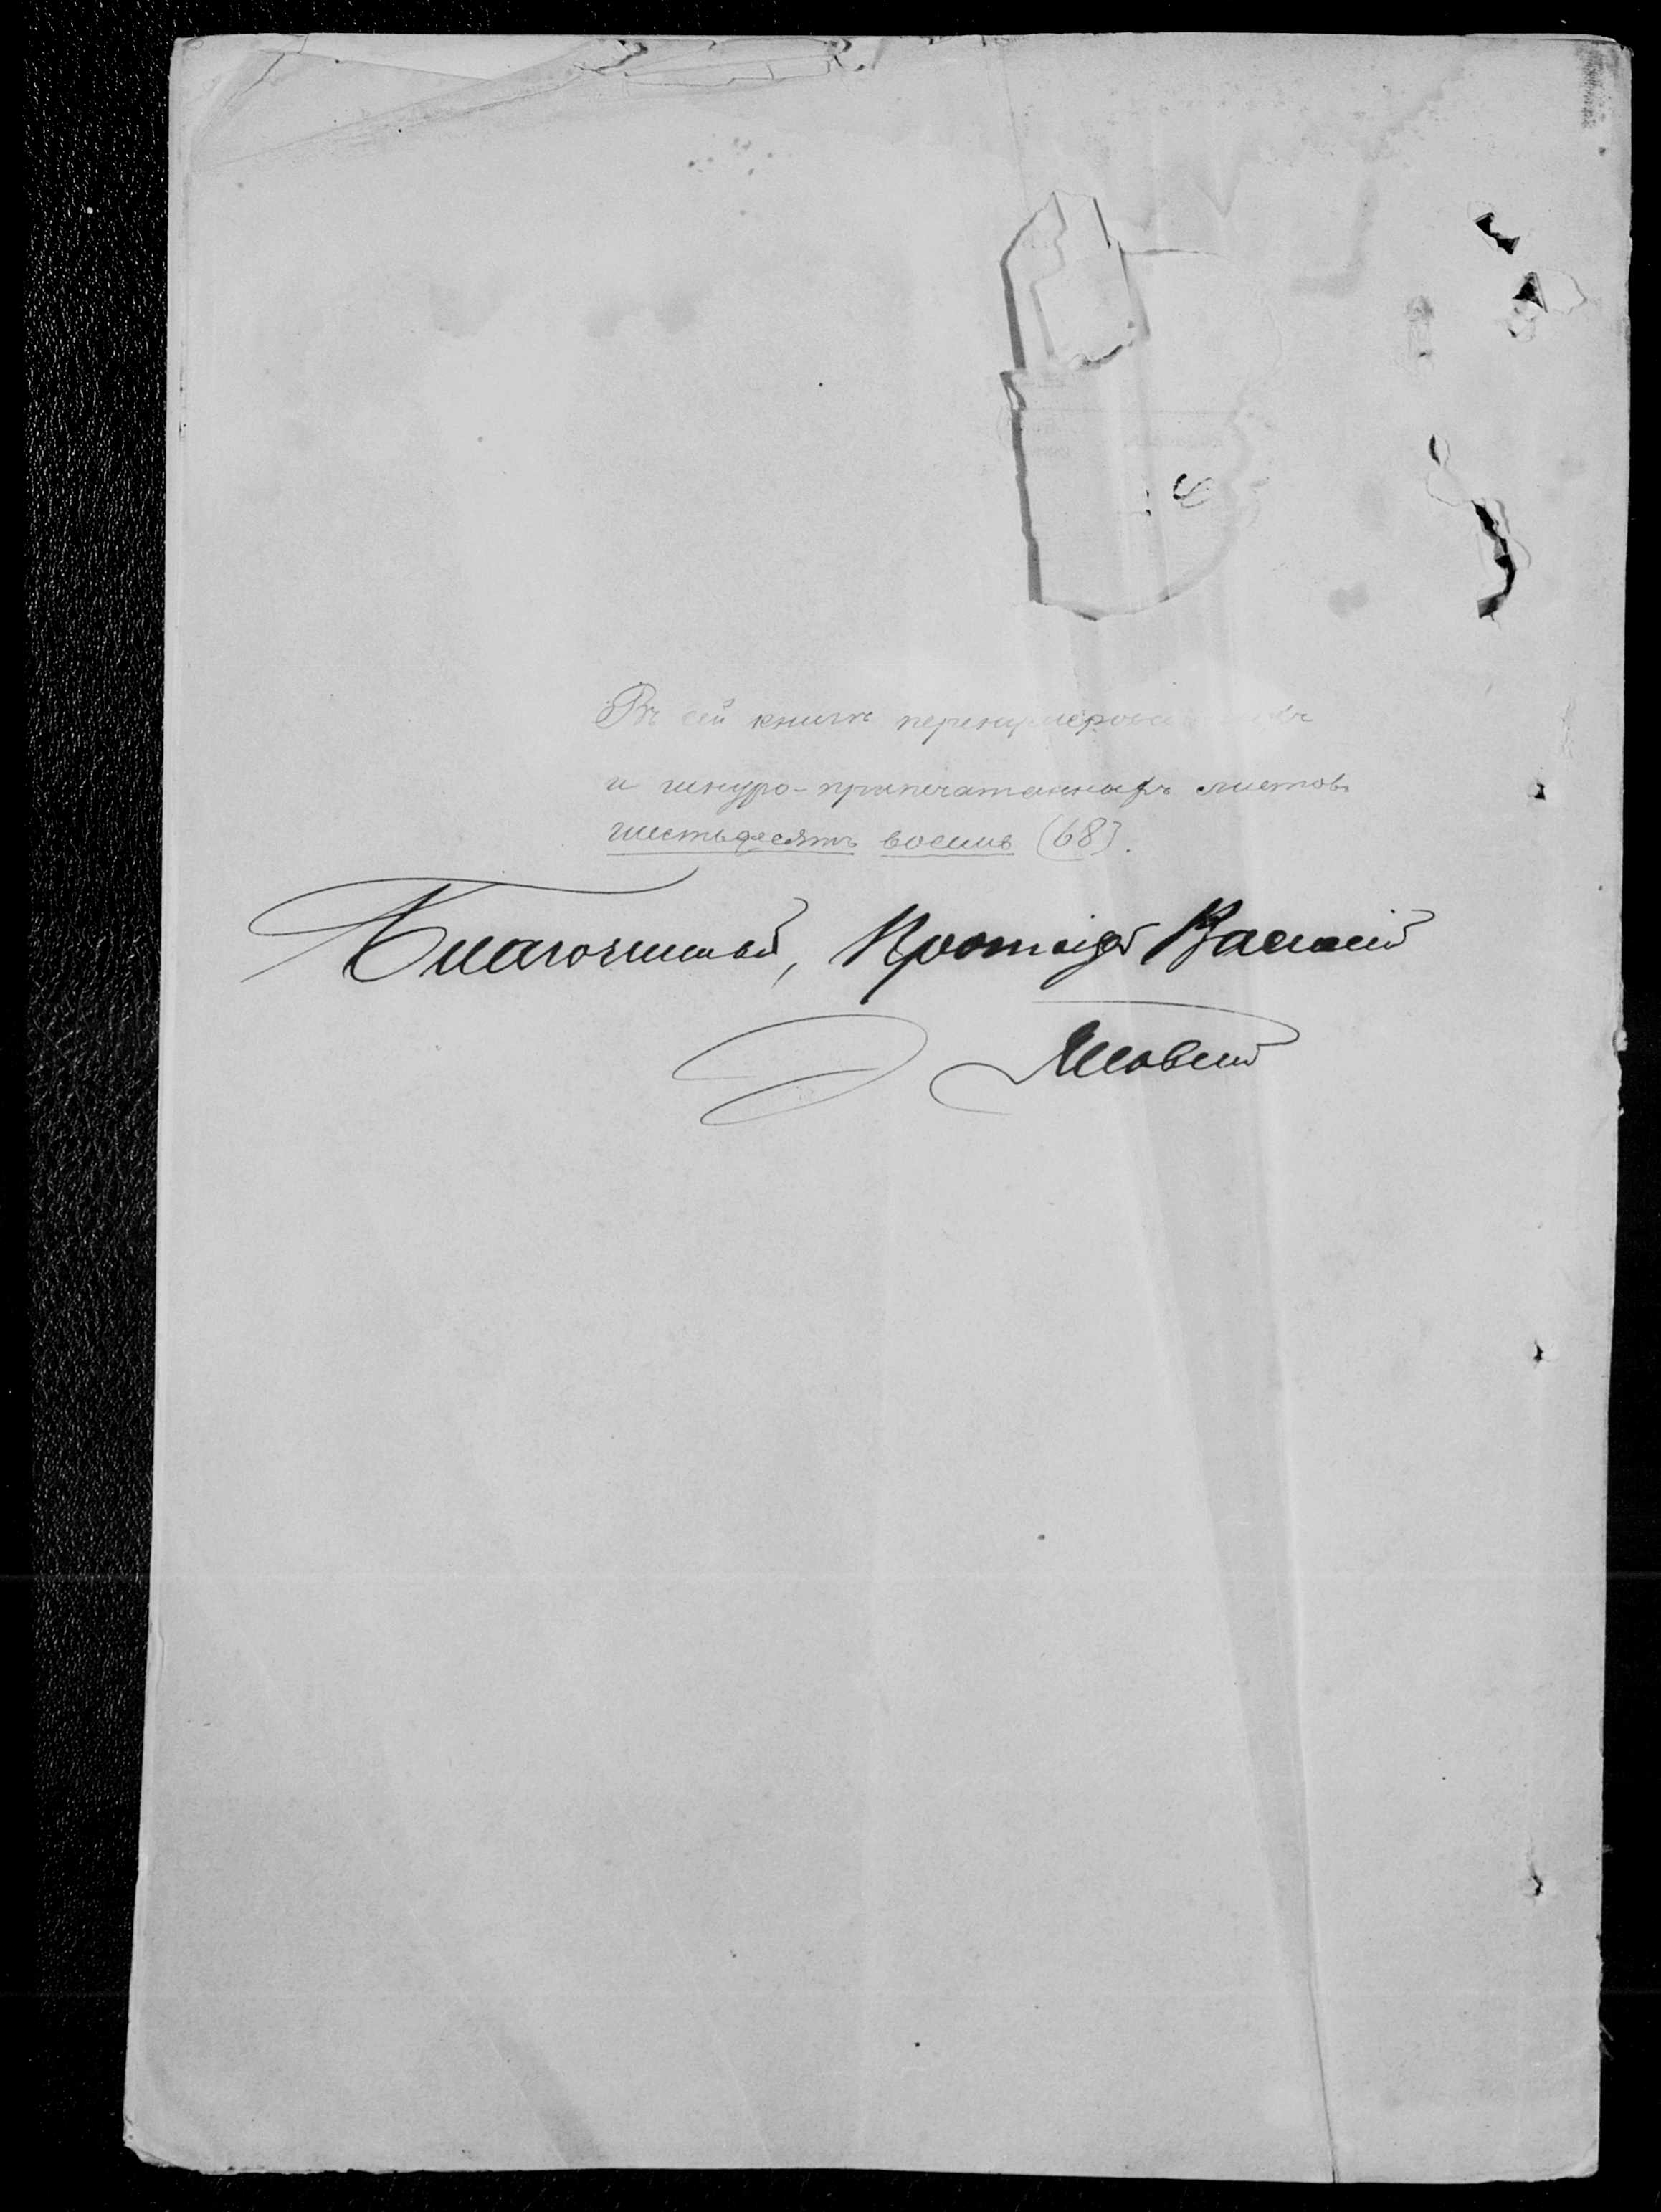 Въ сей книгѣ перенумерова
и шнуро-припечатанныхъ листовъ
шестьдесятъ восемь (68).
Благочинный, Протоіерей Василій